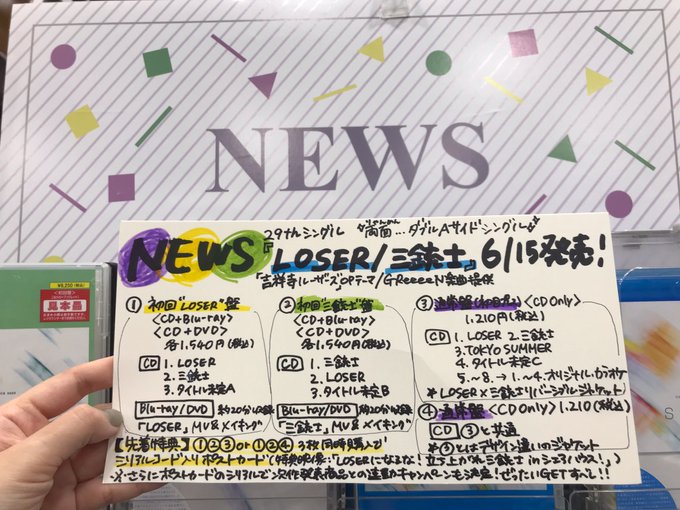 NEWS
29thシングル 両面…ダブルAサイドシングル
NEWS『LOSER/三銃士』6/15発売!
「吉祥寺ルーザーズ」OPテーマ/GReeeeN楽曲提供
① 初回"LOSER"盤
<CD+Blu-ray>
<CD+DVD>
各1,540円(税込)
CD 1. LOSER
2. 三銃士
3. タイトル未定A
Blu-ray/DVD 約20分収録
「LOSER」MV&メイキング
② 初回"三銃士"盤
<CD+Blu-ray>
<CD+DVD>
各1,540円(税込)
CD 1. 三銃士
2. LOSER
3. タイトル未定B
Blu-ray/DVD 約20分収録
「三銃士」MV&メイキング
③ 通常盤(初回プレス)<CD Only>
1,210円(税込)
CD 1. LOSER 2. 三銃士
3. TOKYO SUMMER
4. タイトル未定C
5.~8.→1.~4.オリジナル・カラオケ
*LOSER×三銃士リバーシブルジャケット
④ 通常盤<CD Only>1,210(税込)
CD ③と共通
*③とはデザイン違いのジャケット
【先着特典】①②③or①②④3枚同時購入で
シリアルコード入りポストカード(特典映像:"LOSERになるな!立ち上がれ三銃士 inシェアハウス!")
※さらにポストカードのシリアルで次作発売商品との連動キャンペーンも決定!ぜったいGETすべし!!
¥9,250(税込)
見本盤